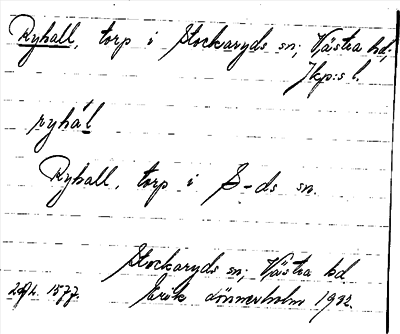 Ryhall, torp i Stockaryds sn; Västra hd;
Jkp:s l.
ryhá̱l
Ryhall, torp i S-ds sn.
Stockaryds sn; Västra hd
1577. Erik Lönnerholm 1922.